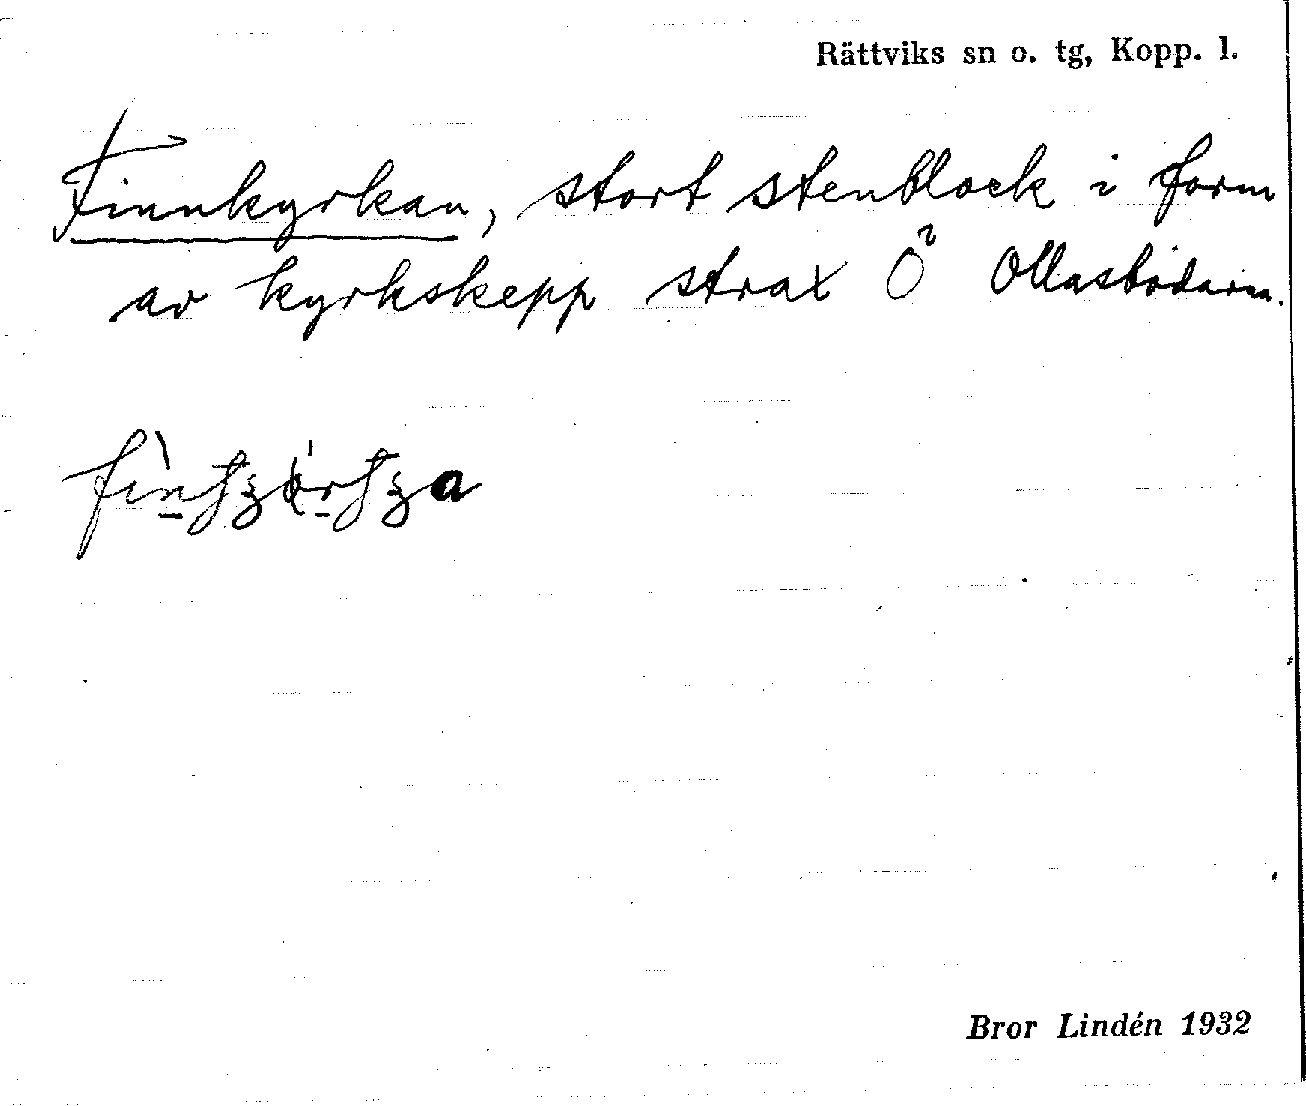 Rättviks sn o. tg, Kopp. l.
Finnkyrkan, stort stenblock i form
av kyrkskepp strax Ö² Ollasbodarna.
Bror Lindén 1932